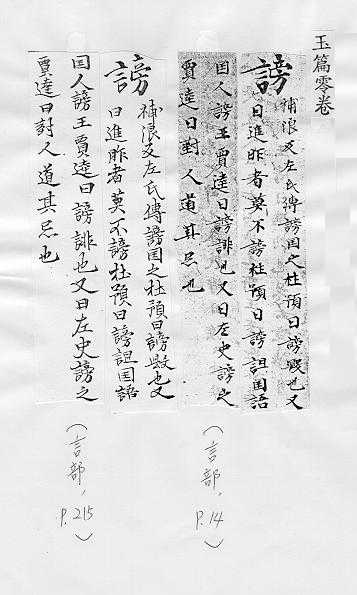 玉篇零卷
謗
補浪反左氏傳謗国之杜預曰謗毀也又
曰進昨者莫不謗杜預曰謗詛国語
国人謗王賈逵曰謗誹也又曰左史謗之
賈逵曰對人道其忌也
(言部, P.14)
謗
補浪反左氏傳謗国之杜預曰謗毀也又
曰進昨者莫不謗杜預曰謗詛国語
国人謗王賈逵曰謗誹也又曰左史謗之
賈逵曰討人道其忌也
(言部, P.215)